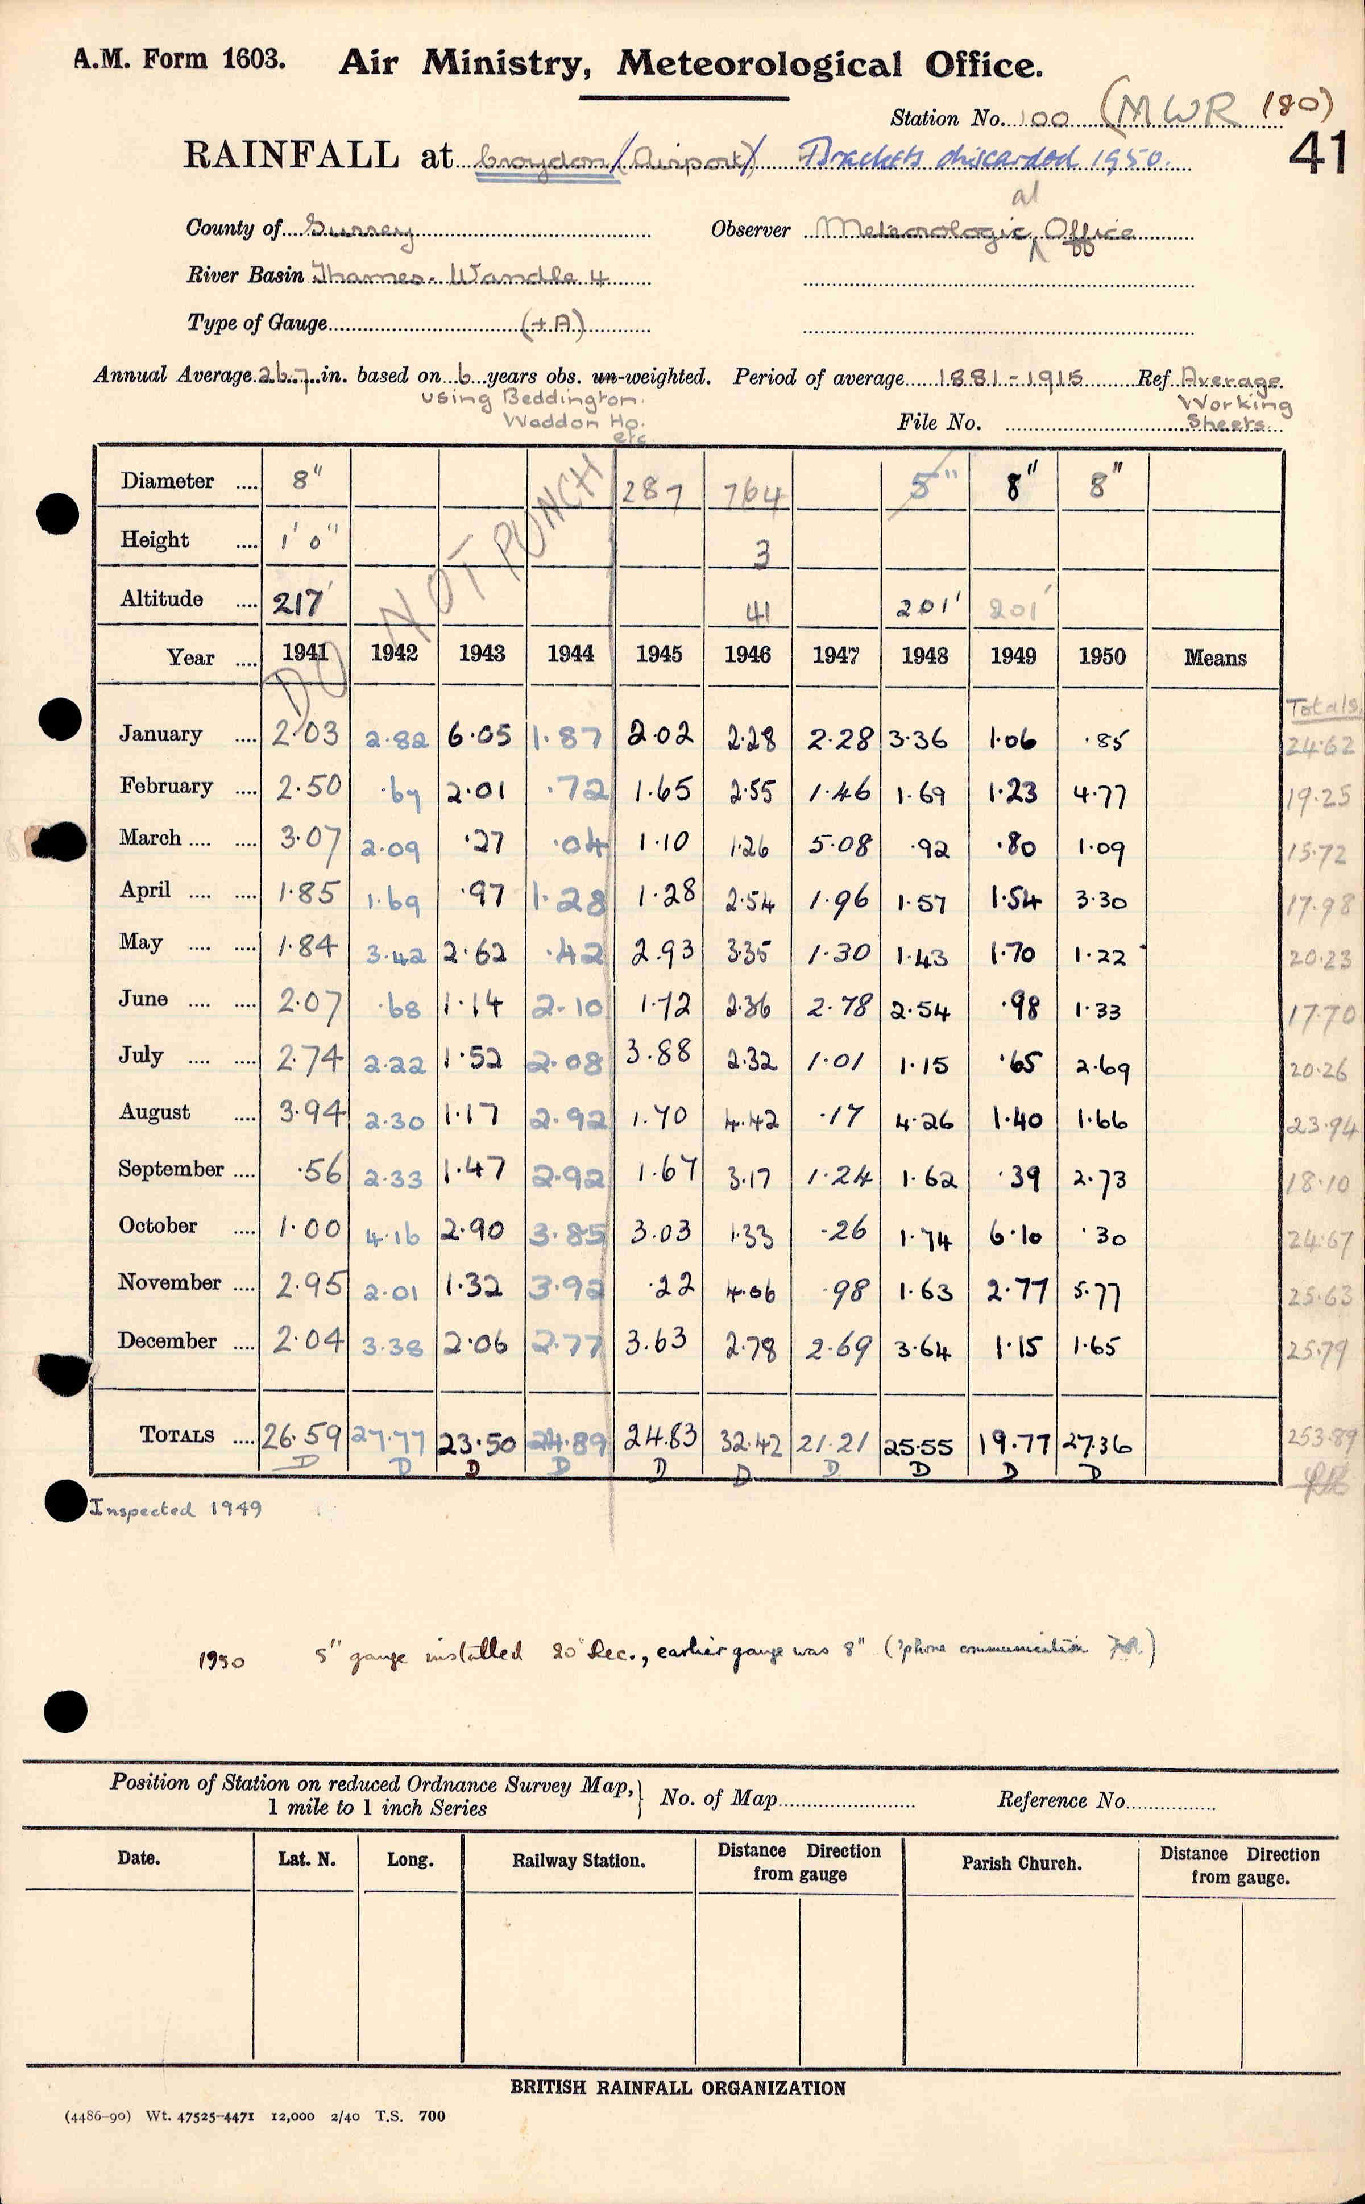 A.M. Form 1603. Air Ministry, Meteorological Office.
Station No. 100 (MWR (80)
41
RAINFALL at Croydon (Airport) Brackets discarded 1950.
County of Surrey Observer Meteorological Office
River Basin Thames. Wandle 4
Type of Gauge (+A)
Annual Average 26.7 in. based on 6 years obs. un-weighted. Period of average 1881-1915 Ref Average
using Beddington. Working
Waddon Ho. File No. Sheets.
etc
DO NOT PUNCH
Diameter .... 8" 287 764 5" 8" 8"
Height .... 1' 0" 3
Altitude .... 217' 41 201' 201'
Year .... 1941 1942 1943 1944 1945 1946 1947 1948 1949 1950 Means
Totals.
January .... 2.03 2.82 6.05 1.87 2.02 2.28 2.28 3.36 1.06 .85 24.62
February .... 2.50 .67 2.01 .72 1.65 2.55 1.46 1.69 1.23 4.77 19.25
March .... .... 3.07 2.09 .27 .04 1.10 1.26 5.08 .92 .80 1.09 15.72
April .... .... 1.85 1.69 .97 1.28 1.28 2.54 1.96 1.57 1.54 3.30 17.98
May .... .... 1.84 3.42 2.62 .42 2.93 3.35 1.30 1.43 1.70 1.22 20.23
June .... .... 2.07 .68 1.14 2.10 1.72 2.36 2.78 2.54 .98 1.33 17.70
July .... .... 2.74 2.22 1.52 2.08 3.88 2.32 1.01 1.15 .65 2.69 20.26
August .... 3.94 2.30 1.17 2.92 1.70 4.42 .17 4.26 1.40 1.66 23.94
September .... .56 2.33 1.47 2.92 1.67 3.17 1.24 1.62 .39 2.73 18.10
October .... 1.00 4.16 2.90 3.85 3.03 1.33 .26 1.74 6.10 .30 24.67
November .... 2.95 2.01 1.32 3.92 .22 4.06 .98 1.63 2.77 5.77 25.63
December .... 2.04 3.38 2.06 2.77 3.63 2.78 2.69 3.64 1.15 1.65 25.79
TOTALS .... 26.59 27.77 23.50 24.89 24.83 32.42 21.21 25.55 19.77 27.36 253.89
D D D D D D D D D D
Inspected 1949
1950 5" gauge installed 20 Dec., earlier gauge was 8" ('phone communication
Position of Station on reduced Ordnance Survey Map,
1 mile to 1 inch Series
No. of Map Reference No.
Date. Lat. N. Long. Railway Station. Distance Direction from gauge Parish Church. Distance Direction from gauge.
BRITISH RAINFALL ORGANIZATION
(4486-90) Wt. 47525-4471 12,000 2/40 T.S. 700